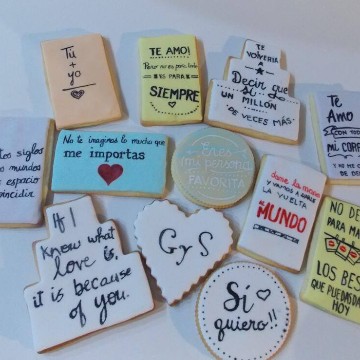 Tú
+ yo
TE AMO!
Pero no es para tanto
ES PARA
SIEMPRE
TE
VOLVERÍA
A
Decir que
SÍ
UN MILLÓN
DE VECES MÁS
Te
Amo
CON TODO
MI COR
siglos
mundos
espacio
incidir
No te imaginas lo mucho que
me importas
Eres
mi persona
FAVORITA
dame la mano
Y VAMOS A DARLE
LA VUELTA
AL
MUNDO
NO DE
PARA MA
LOS BES
QUE PUEDAS DA
HOY
If I
know what
love is,
it is because
of you.
G y S
Sí
quiero!!